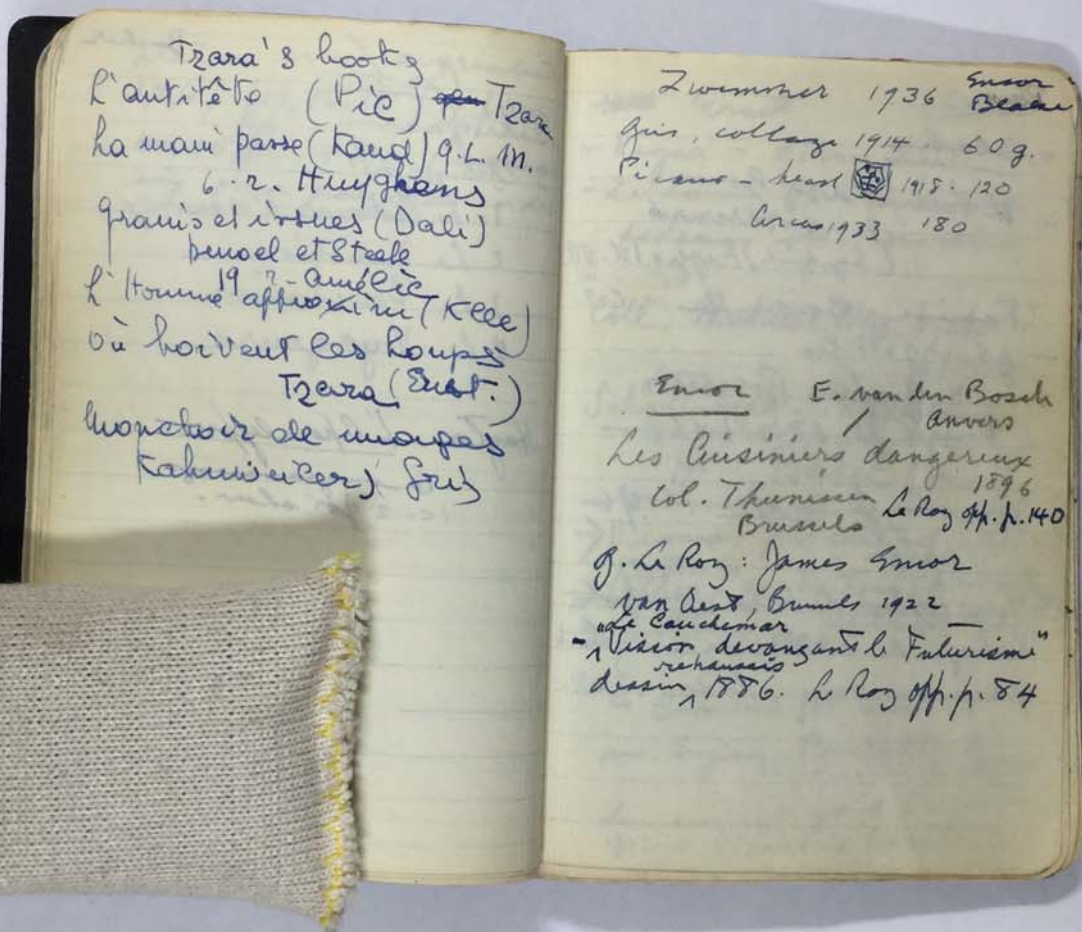 Tzara's books
L'antitête (Pic) Tzara
La main passe (Kand) G.L.M.
6. r. Huyghens
Grains et issues (Dali)
Denoel et Steele
19 r. Amélie
L'Homme approxim (Klee)
Où boivent les loups
Tzara (Ernst.)
Mouchoir de nuages
Kahnweiler) Gris
Zwemmer 1936
Ensor
Gris, collage 1914 - 60 g.
Picasso - head 1918 - 120
Circus 1933 180
Ensor E. van den Bosch
Anvers
Les Cuisiniers dangereux
1896
Col. Thunissen
Brussels Le Roy opp. p. 140
G. Le Roy: James Ensor
van Oest, Brussels 1922
"Le Cauchemar
- Vision devançant le Futurisme"
rehaussés
dessin, 1886. Le Roy opp. p. 84